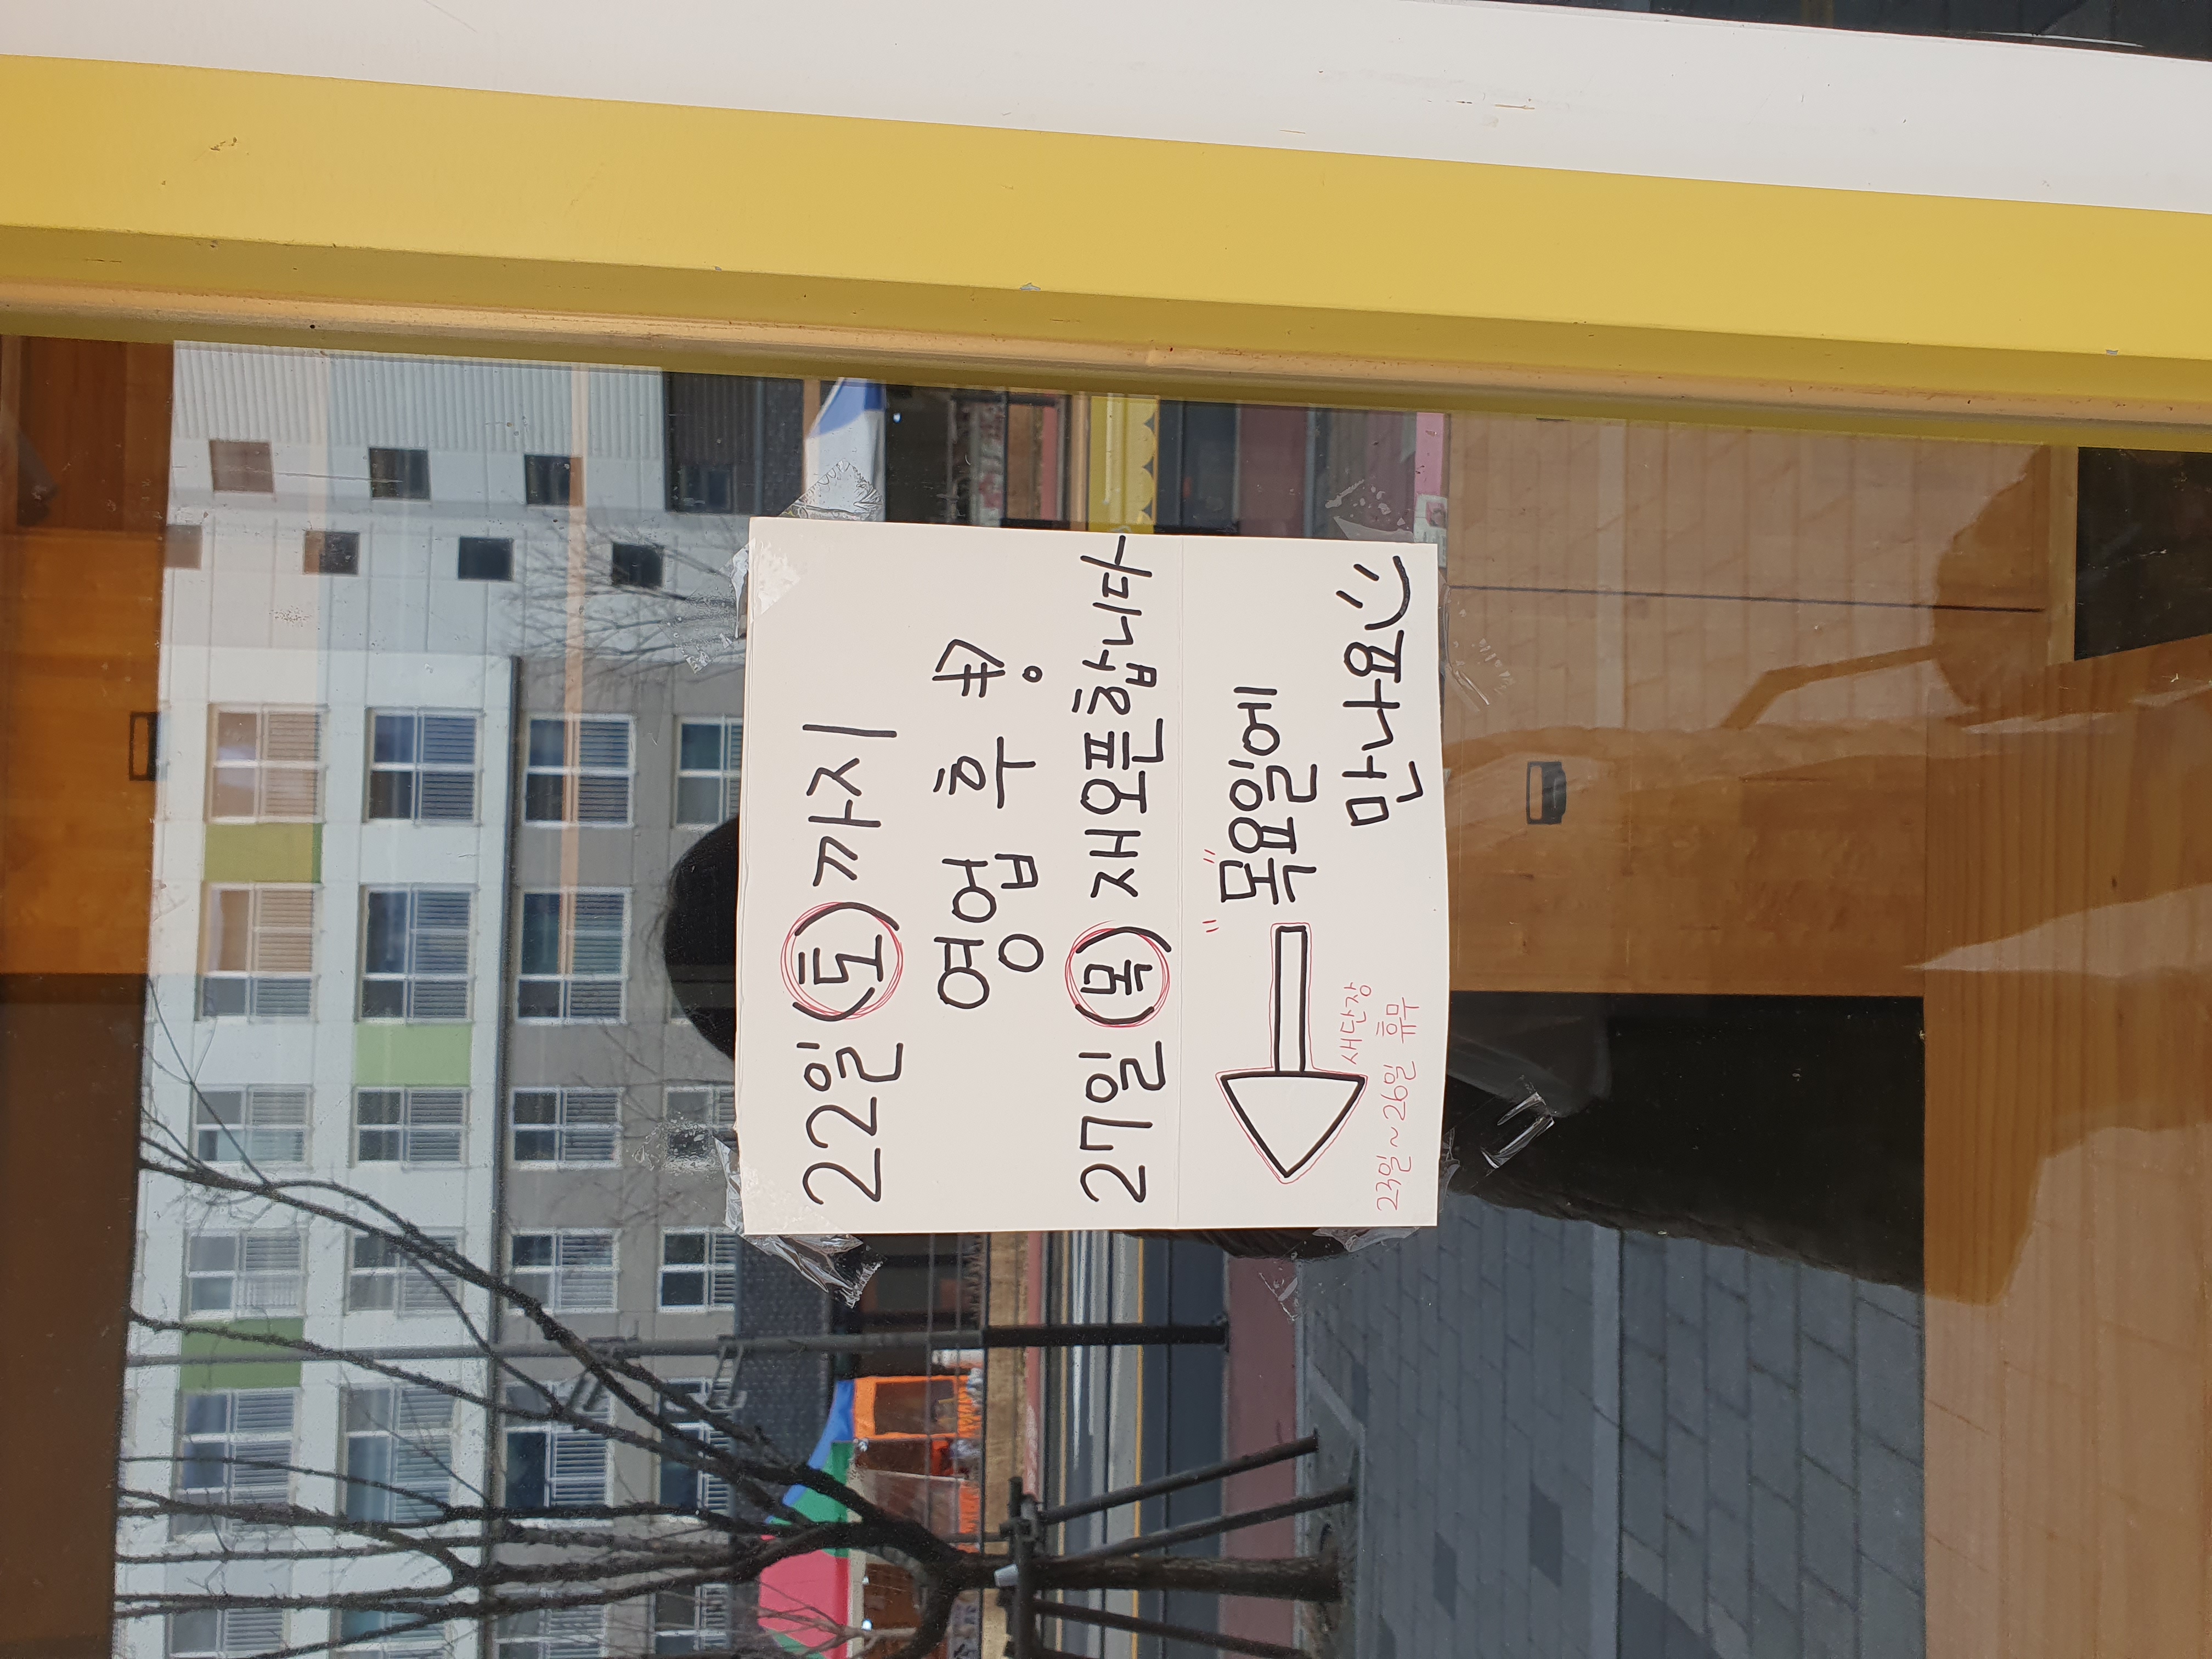 22일(토)까지
영업 후 쿵
27일(목) 재오픈합니다
"목요일에"
만나요
새단장
23일~26일 휴무